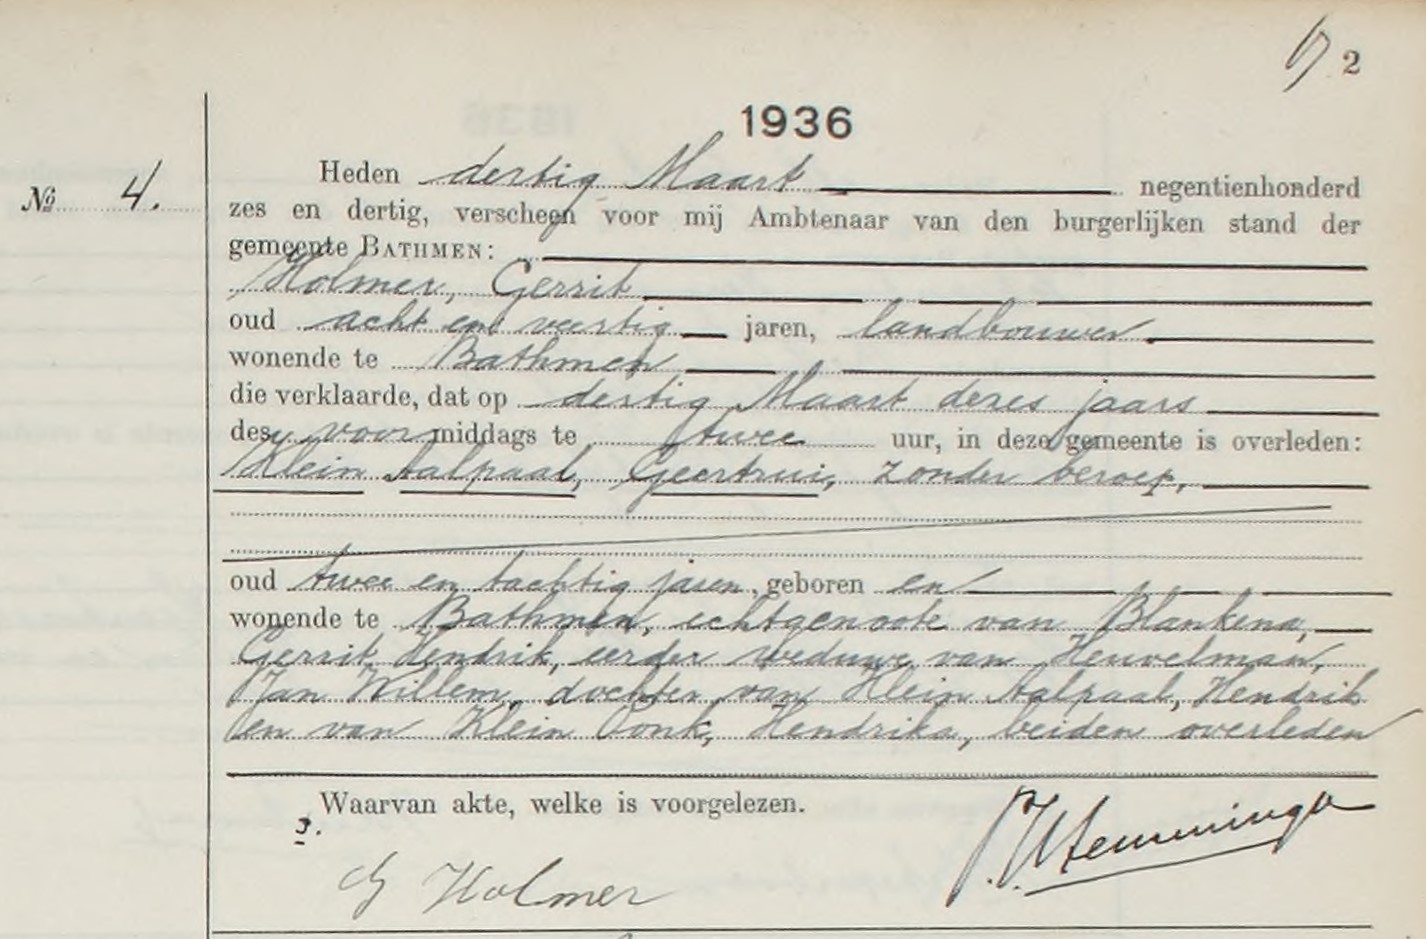 2
1936
Nº 4.
Heden dertig Maart negentienhonderd
zes en dertig, verscheen voor mij Ambtenaar van den burgerlijken stand der
gemeente BATHMEN:
Holmer, Gerrit
oud acht en veertig jaren, landbouwer
wonende te Bathmen
die verklaarde, dat op dertig Maart dezes jaars
des voormiddags te twee uur, in deze gemeente is overleden:
Klein Aalpaal, Geertrui, zonder beroep,
oud twee en tachtig jaren, geboren en
wonende te Bathmen, echtgenoote van Blankena,
Gerrit Hendrik, eerder weduwe van Heuvelman,
Jan Willem, dochter van Klein Aalpaal, Hendrik
en van Klein Oonk, Hendrika, beiden overleden
Waarvan akte, welke is voorgelezen.
G Holmer